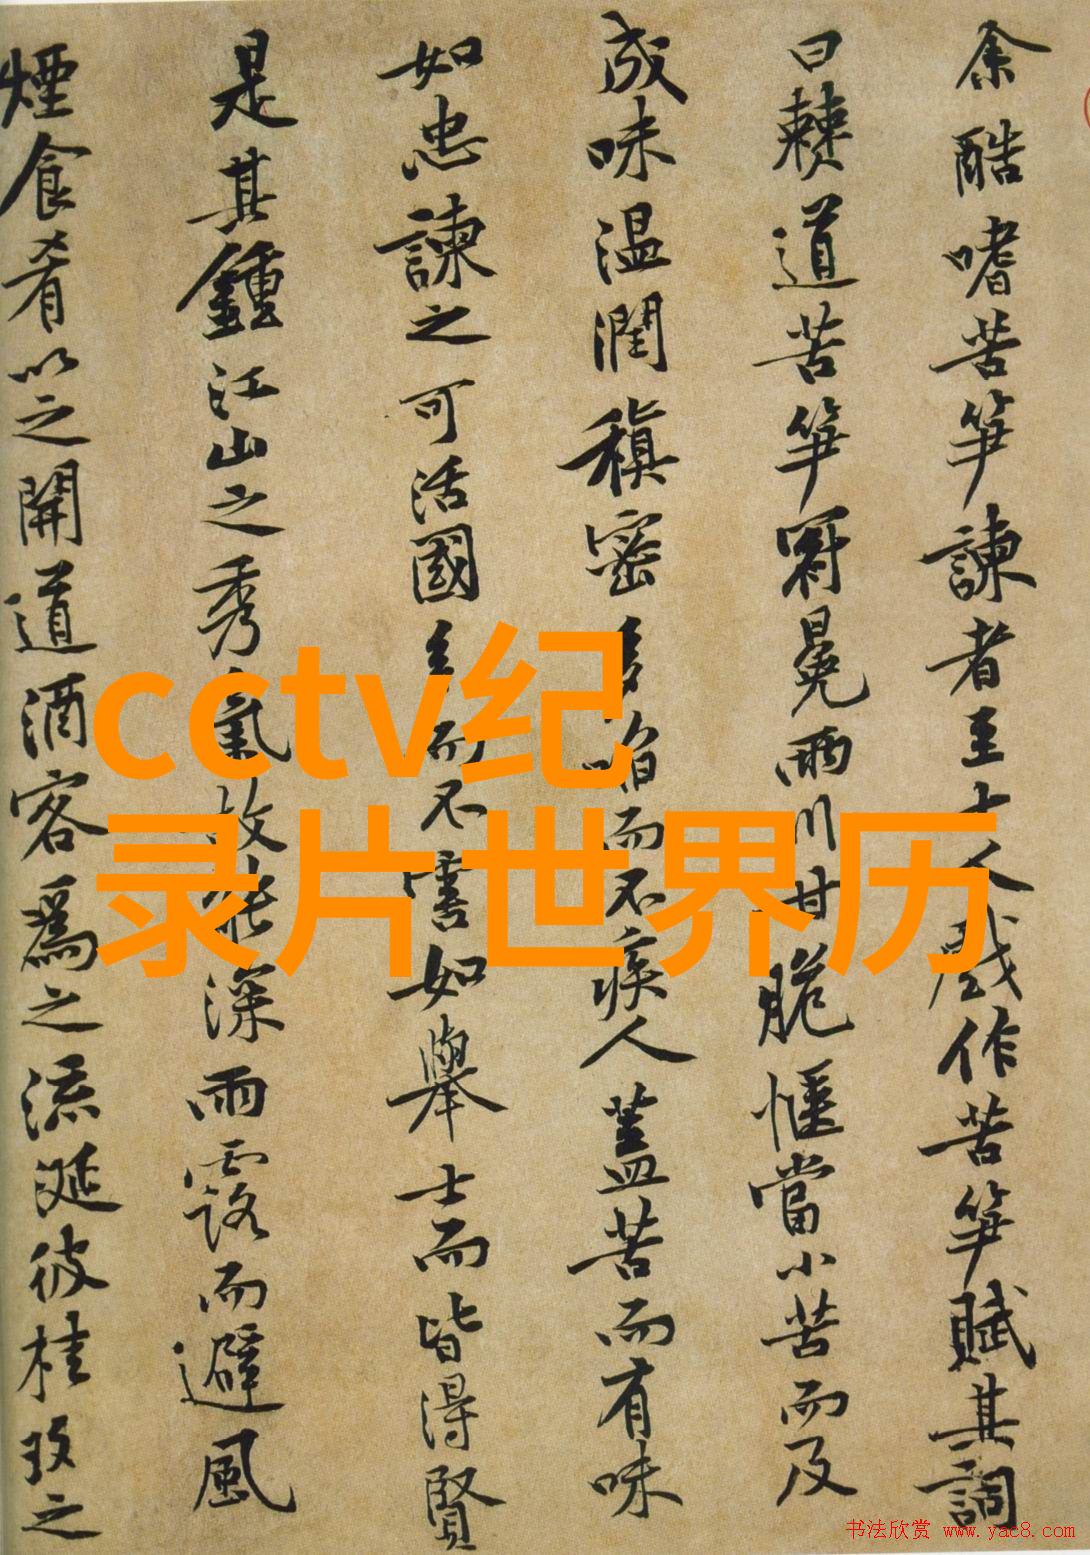 余酷嗜苦笋諫者至十人戲作苦笋賦其詞
曰僰道苦笋冠冕兩川甘脆愜當小苦而及
成味温潤稹密多啗而不疾人蓋苦而有味
如忠諫之可活國多而不害如舉士而皆得賢
是其鍾江山之秀氣故能深雨露而避風
煙食肴以之開道酒客為之流涎彼桂玫之
cctv纪
录片世界历
书法欣赏 www.yac8.com